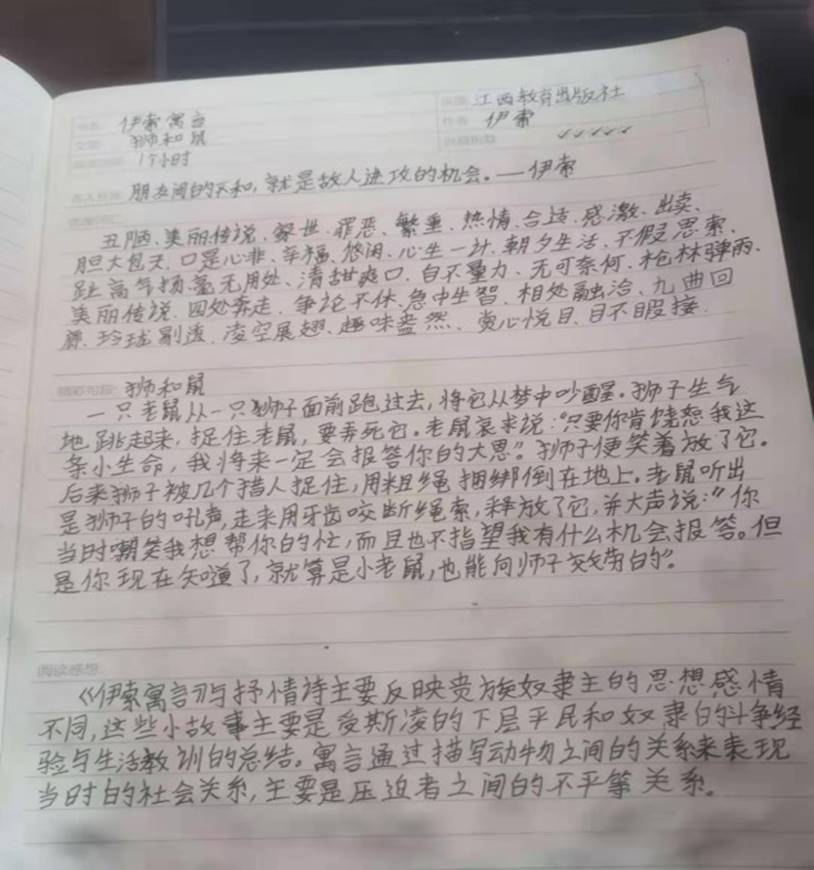 伊索寓言 江西教育出版社
狮和鼠 伊索
1个小时 ✓✓✓✓✓
朋友间的不和,就是敌人进攻的机会。——伊索
丑陋、美丽传说、罪恶、繁重、热情、合适、感激、出卖、
胆大包天、口是心非、幸福、悠闲、心生一计、朝夕生活、不假思索、
趾高气扬、毫无用处、清甜爽口、自不量力、无可奈何、枪林弹雨、
美丽传说、四处奔走、争论不休、急中生智、相处融洽、九曲回
廊、玲珑剔透、凌空展翅、趣味盎然、赏心悦目、目不暇接.
狮和鼠
一只老鼠从一只狮子面前跑过去,将它从梦中吵醒。狮子生气
地跳起来,捉住老鼠,要弄死它。老鼠哀求说:“只要你肯饶恕我这
条小生命,我将来一定会报答你的大恩”。狮子便笑着放了它。
后来狮子被几个猎人捉住,用粗绳捆绑倒在地上。老鼠听出
是狮子的吼声,走来用牙齿咬断绳索,释放了它,并大声说:“你
当时嘲笑我想帮你的忙,而且也不指望我有什么机会报答。但
是你现在知道了,就算是小老鼠,也能向师子效劳的”。
阅读感想
《伊索寓言》与抒情诗主要反映贵族奴隶主的思想感情
不同,这些小故事主要是受斯凌的下层平民和奴隶的斗争经
验与生活教训的总结。寓言通过描写动物之间的关系来表现
当时的社会关系,主要是压迫者之间的不平等关系。